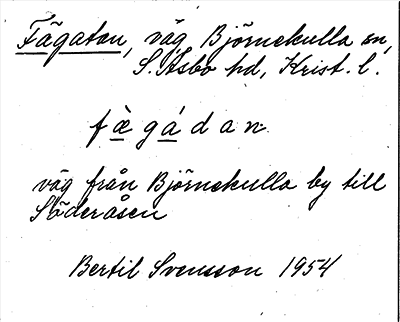 Fägatan, väg Björnekulla sn,
S. Åsbo hd, Krist. l.
fæ̀gádan
väg från Björnekulla by till
Söderåsen
Bertil Svensson 1954